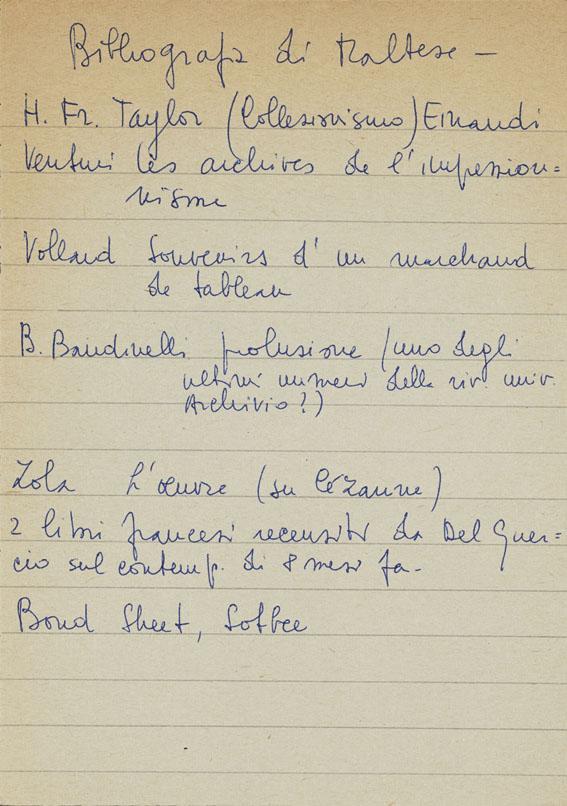 Bibliografia di Maltese —
H. Fr. Taylor (Collezionismo) Einaudi
Venturi Les archives de l'impession=
nisme
Vollard Souvenirs d'un marchand
de tableau
B. Bandinelli prolusione (uno degli
ultimi numeri della riv. univ.
Archivio?)
Zola L'œuvre (su Cézanne)
2 libri francesi recensiti da Del Guer=
cio sul contemp. di 8 mesi fa.
Bond Sheet, Sotbee